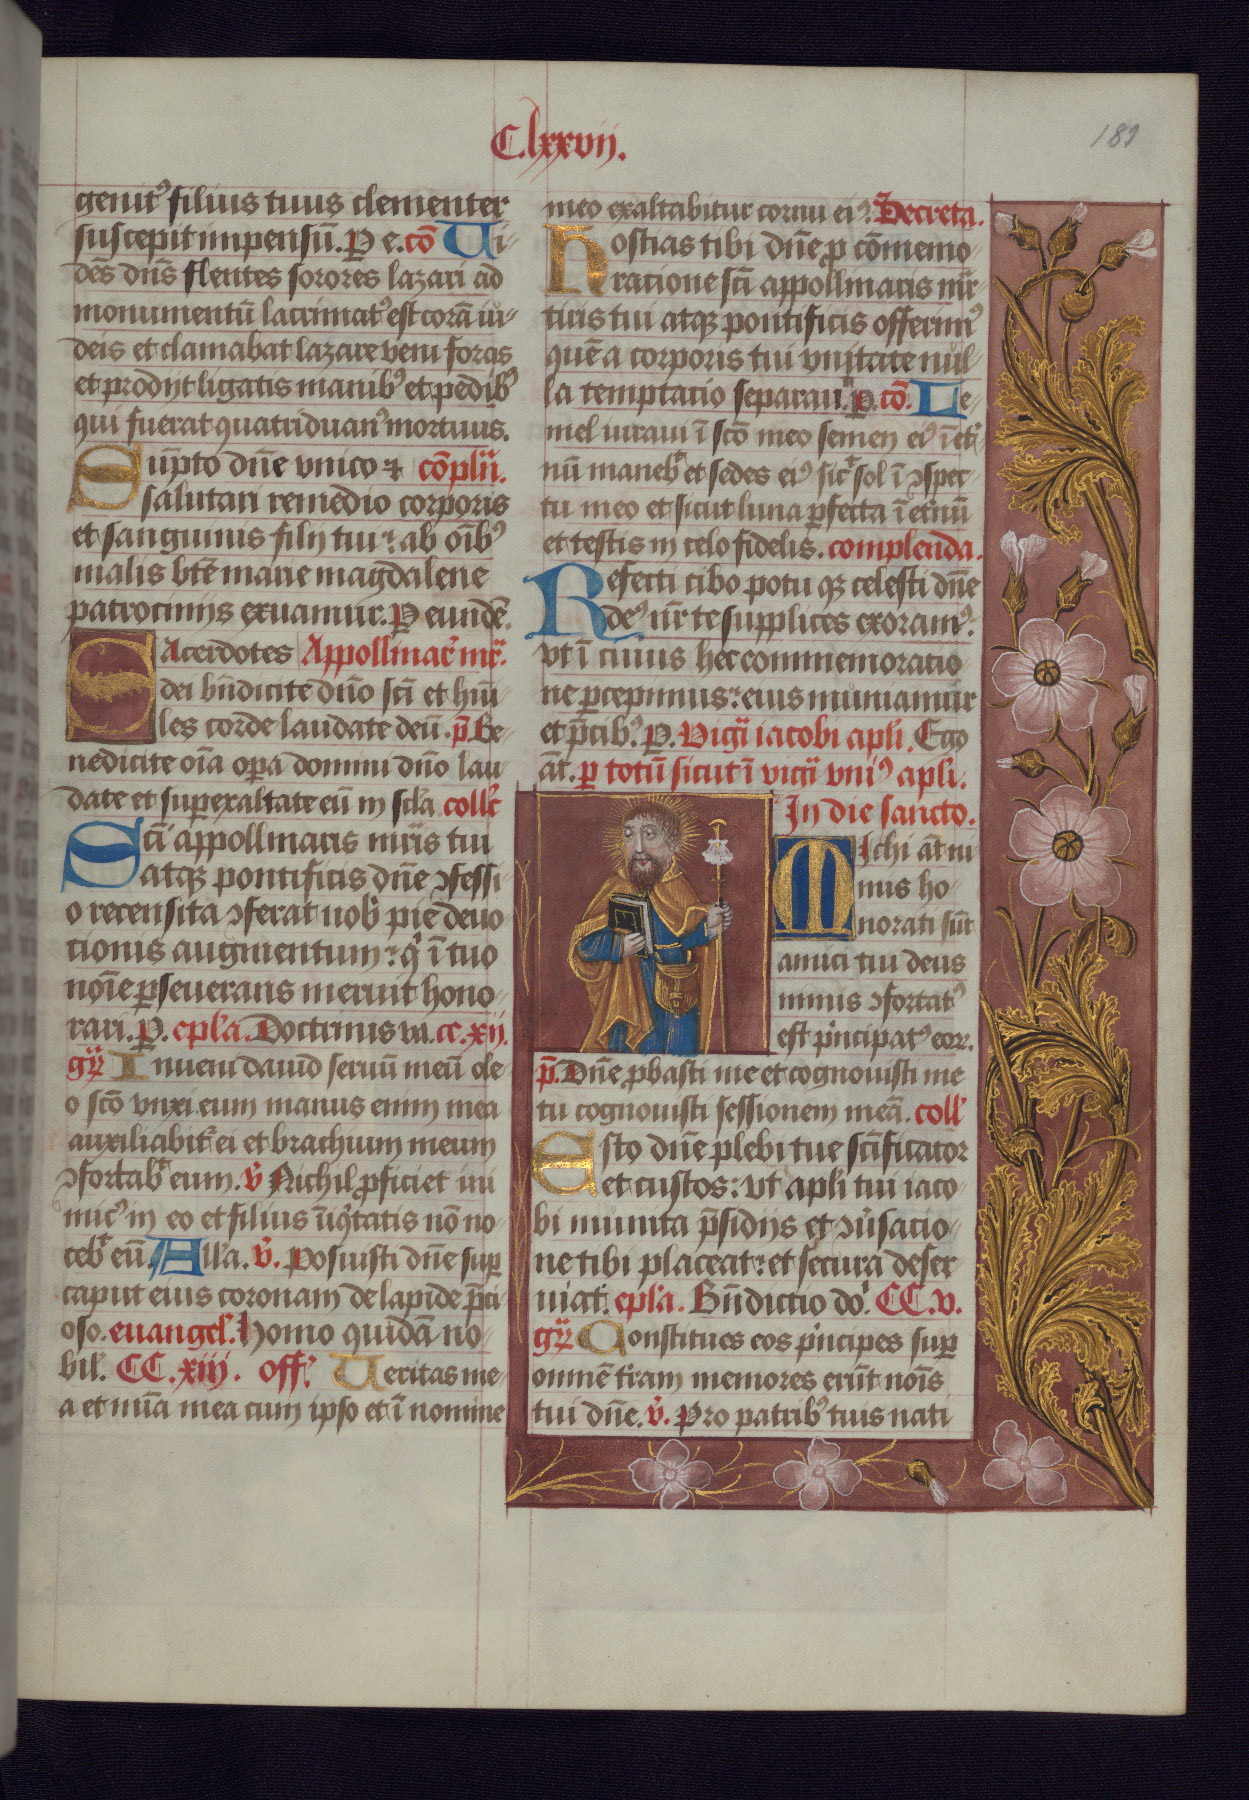 C.lxxvij.
189
genitꝰ filius tuus clementer
suscepit impensū. P e. cō Ui-
dēs dn̄s flentes sorores lazari ad
monumentū lacrimatꝰ est corā iu-
deis et clamabat lazare veni foras
et prodijt ligatis manibꝰ et pedibꝰ
qui fuerat quatriduanꝰ mortuus.
Sūpto dn̄e vnico ⁊ cōpln̄.
salutari remedio corporis
et sanguinis filij tui: ab oībꝰ
malis bt̄e marie magdalene
patrocinijs exuamur. P eundē.
SAcerdotes Appollinar̓ mr̄.
dei bn̄dicite dn̄o scī et hūi-
les corde laudate deū. p̄. Be-
nedicite oīa oꝑa domini dn̄o lau
date et suꝑexaltate eū in scl̓a coll̓c
Scī appollinaris mr̄is tui
atqꝫ pontificis dn̄e ꝯfessi-
o recensita ꝯferat nob̓ pie deuo-
tionis augmentum: q̓ ī tuo
noīe ꝑseuerans meruit hono-
rari. P. epl̓a. Doctrinis va. cc.xij.
gr̄. Inueni dauid seruū meū ole-
o scō vnxi eum manus enim mea
auxiliabit̓ ei et brachium meum
ꝯfortab̓ eum. v̄ Nichil ꝓficiet ini
micꝰ in eo et filius īiq̓tatis nō no-
ceb̓ eū. All̓a. v̄. Posuisti dn̄e suꝑ
caput eius coronam de lapide p̄ci
oso. euangel̓. Homo quidā no-
bil̓. CC.xiij. off. Ueritas me-
a et mīa mea cum ipso et ī nomine
meo exaltabitur cornu eiꝰ. Secreta.
Hostias tibi dn̄e ꝓ cōmemo-
ratione scī appollinaris mr̄-
tiris tui atqꝫ pontificis offerimꝰ
quē a corporis tui vnitate nul-
la temptatio separauit. P. cō. Se-
mel iuraui ī scō meo semen eiꝰ ī et̓-
nū maneb̓ et sedes eiꝰ sic̓ sol ī ꝯspec-
tu meo et sicut luna ꝑfecta ī et̓nū
et testis in celo fidelis. complenda.
Refecti cibo potu qꝫ celesti dn̄e
deꝰ nr̄ te supplices exoramꝰ.
vt ī cuius hec commemoratio-
ne ꝑcepimus: eius muniamur
et p̄cibꝰ. P. Vigiī iacobi apl̓i. Ego
āt. ꝑ totū sicut ī vigiī vniꝰ apl̓i.
In die sancto.
MIchi āt ni
mis ho-
norati sūt
amici tui deus
nimis ꝯfortatꝰ
est p̓ncipatꝰ eoꝝ.
p̄. Dn̄e ꝓbasti me et cognouisti me
tu cognouisti sessionem meā. coll̓
Esto dn̄e plebi tue scīficator
et custos: vt apl̓i tui iaco-
bi munita p̄sidijs et ꝯu̓satio-
ne tibi placeat: et secura deser
uiat. epl̓a. Bn̄dictio do̓. CC.v.
gr̄. Constitues eos p̓ncipes suꝑ
omnē t̓ram memores erūt noīs
tui dn̄e. v̄. Pro patribꝰ tuis nati